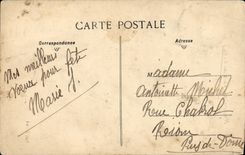 CARTE POSTALE
Correspondance
Adresse
Mes meilleurs
voeux pour fête
Marie
Madame
Antoinette Michel
Rue Chabrol
Riom
Puy-de-Dôme